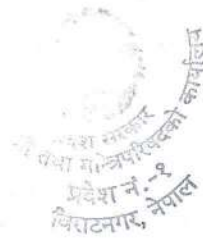 प्रदेश सरकार
तथा मन्त्रिपरिषद्को कार्यालय
प्रदेश नं.-१
विराटनगर, नेपाल